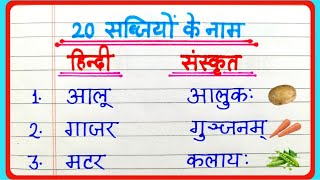 20 सब्जियों के नाम
हिन्दी संस्कृत
1. आलू आलुकः
2. गाजर गुञ्जनम्
3. मटर कलायः